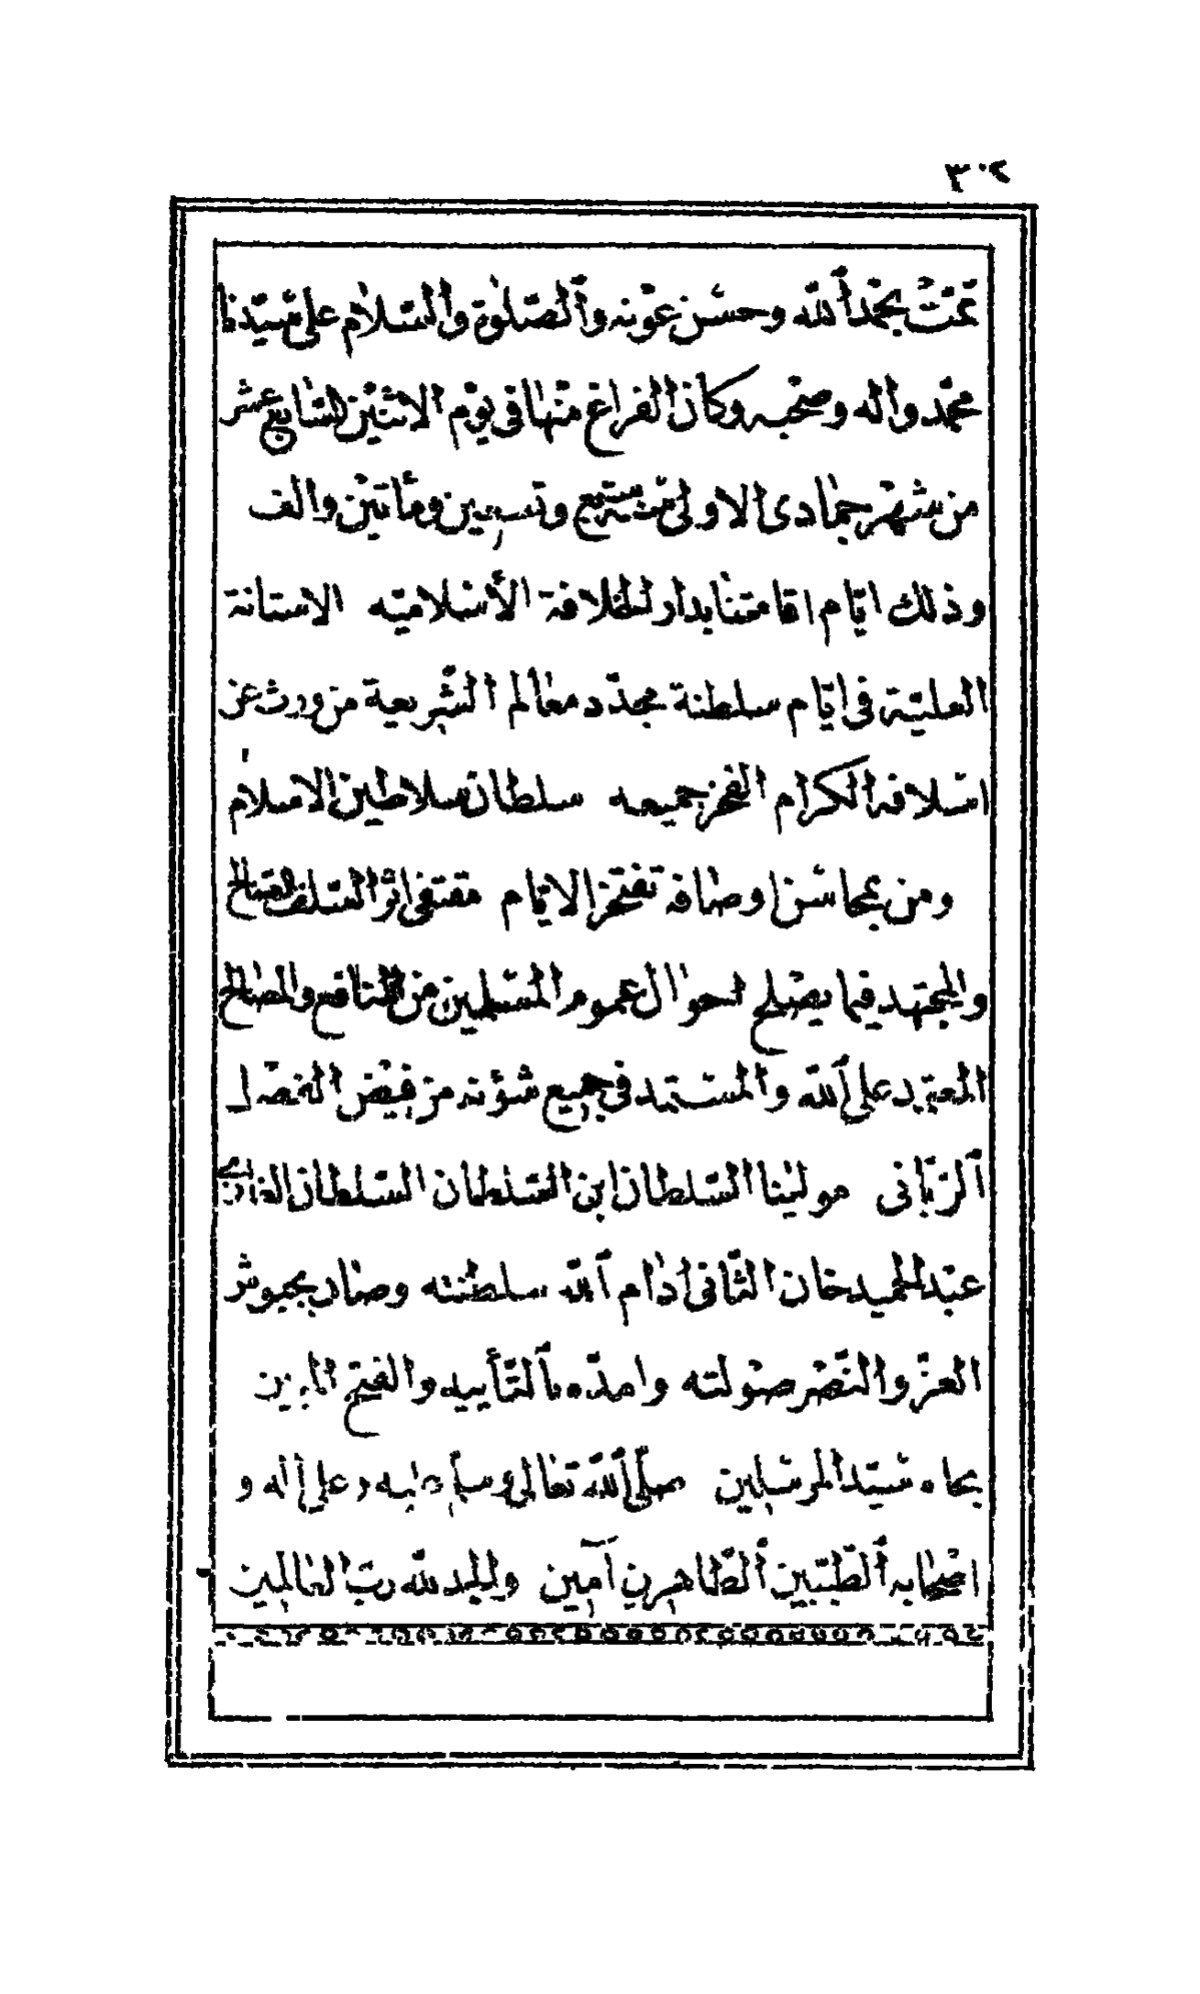 ٣٠٢
تمّت بحمد الله وحسن عونه والصّلوة والسّلام على سيّدنا
محمّد واله وصحبه وكان الفراغ منها في يوم الاثنين السّابع عشر
من شهر جمادى الاولى من سبع وتسعين ومأتين والف
وذلك ايّام اقامتنا بدار الخلافة الأسلاميّه الاستانة
العليّة في ايّام سلطنة مجدّد معالم الشّريعة من ورث عن
اسلافه الكرام الفخر جميعه سلطان سلاطين الاسلام
ومن بمحاسن اوصافه تفتخر الايّام مقتفي اثر السّلف الصّالح
والمجتهد فيما يصلح احوال عموم المسلمين من المنافع والمصالح
المعتمد على الله والمستمد في جميع شؤنه من فيض الفضل
الربّاني مولينا السّلطان ابن السّلطان السّلطان الغازي
عبد الحميد خان الثّاني ادام الله سلطنته وصان بجيوش
العزّ والنّصر صولته وامدّه بالتّأييد والفتح المبين
بجاه سيّد المرسلين صلّى الله تعالى وسلّم عليه وعلى اله و
اصحابه الطيّبين الطّاهرين آمين والحمد لله ربّ العالمين